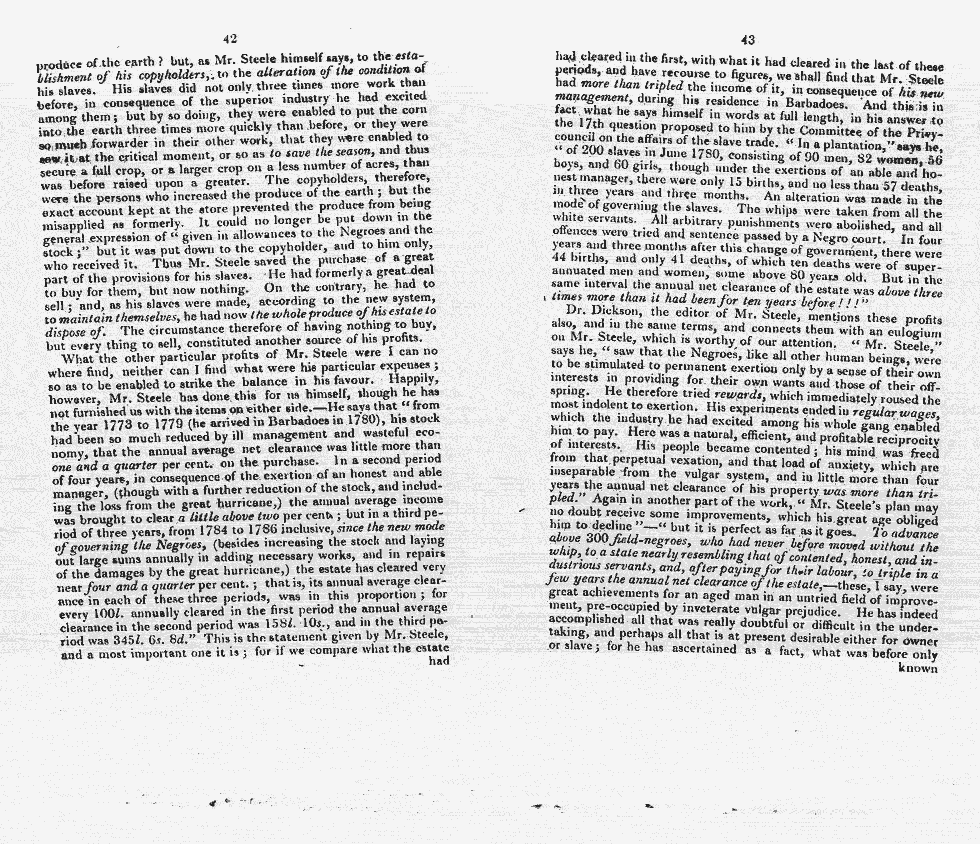 42
produce of the earth? but, as Mr. Steele himself says, to the esta-
blishment of his copyholders, to the alteration of the condition of
his slaves. His slaves did not only three times more work than
before, in consequence of the superior industry he had excited
among them; but by so doing, they were enabled to put the corn
into the earth three times more quickly than before, or they were
so much forwarder in their other work, that they were enabled to
sow it at the critical moment, or so as to save the season, and thus
secure a full crop, or a larger crop on a less number of acres, than
was before raised upon a greater. The copyholders, therefore,
were the persons who increased the produce of the earth; but the
exact account kept at the store prevented the produce from being
misapplied as formerly. It could no longer be put down in the
general expression of "given in allowances to the Negroes and the
stock;" but it was put down to the copyholder, and to him only,
who received it. Thus Mr. Steele saved the purchase of a great
part of the provisions for his slaves. He had formerly a great deal
to buy for them, but now nothing. On the contrary, he had to
sell; and, as his slaves were made, according to the new system,
to maintain themselves, he had now the whole produce of his estate to
dispose of. The circumstance therefore of having nothing to buy,
but every thing to sell, constituted another source of his profits.
What the other particular profits of Mr. Steele were I can no
where find, neither can I find what were his particular expenses;
so as to be enabled to strike the balance in his favour. Happily,
however, Mr. Steele has done this for us himself, though he has
not furnished us with the items on either side.—He says that "from
the year 1773 to 1779 (he arrived in Barbadoes in 1780), his stock
had been so much reduced by ill management and wasteful eco-
nomy, that the annual average net clearance was little more than
one and a quarter per cent. on the purchase. In a second period
of four years, in consequence of the exertion of an honest and able
manager, (though with a further reduction of the stock, and includ-
ing the loss from the great hurricane,) the annual average income
was brought to clear a little above two per cent.; but in a third pe-
riod of three years, from 1784 to 1786 inclusive, since the new mode
of governing the Negroes, (besides increasing the stock and laying
out large sums annually in adding necessary works, and in repairs
of the damages by the great hurricane,) the estate has cleared very
near four and a quarter per cent.; that is, its annual average clear-
ance in each of these three periods, was in this proportion; for
every 100l. annually cleared in the first period the annual average
clearance in the second period was 158l. 10s., and in the third pe-
riod was 345l. 6s. 8d." This is the statement given by Mr. Steele,
and a most important one it is; for if we compare what the estate
had
43
had cleared in the first, with what it had cleared in the last of these
periods, and have recourse to figures, we shall find that Mr. Steele
had more than tripled the income of it, in consequence of his new
management, during his residence in Barbadoes. And this is in
fact what he says himself in words at full length, in his answer to
the 17th question proposed to him by the Committee of the Privy-
council on the affairs of the slave trade. "In a plantation," says he,
"of 200 slaves in June 1780, consisting of 90 men, 82 women, 56
boys, and 60 girls, though under the exertions of an able and ho-
nest manager, there were only 15 births, and no less than 57 deaths,
in three years and three months. An alteration was made in the
mode of governing the slaves. The whips were taken from all the
white servants. All arbitrary punishments were abolished, and all
offences were tried and sentence passed by a Negro court. In four
years and three months after this change of government, there were
44 births, and only 41 deaths, of which ten deaths were of super-
annuated men and women, some above 80 years old. But in the
same interval the annual net clearance of the estate was above three
times more than it had been for ten years before!!!"
Dr. Dickson, the editor of Mr. Steele, mentions these profits
also, and in the same terms, and connects them with an eulogium
on Mr. Steele, which is worthy of our attention. "Mr. Steele,"
says he, "saw that the Negroes, like all other human beings, were
to be stimulated to permanent exertion only by a sense of their own
interests in providing for their own wants and those of their off-
spring. He therefore tried rewards, which immediately roused the
most indolent to exertion. His experiments ended in regular wages,
which the industry he had excited among his whole gang enabled
him to pay. Here was a natural, efficient, and profitable reciprocity
of interests. His people became contented; his mind was freed
from that perpetual vexation, and that load of anxiety, which are
inseparable from the vulgar system, and in little more than four
years the annual net clearance of his property was more than tri-
pled." Again in another part of the work, "Mr. Steele's plan may
no doubt receive some improvements, which his great age obliged
him to decline"—"but it is perfect as far as it goes. To advance
above 300 field-negroes, who had never before moved without the
whip, to a state nearly resembling that of contented, honest, and in-
dustrious servants, and, after paying for their labour, to triple in a
few years the annual net clearance of the estate,—these, I say, were
great achievements for an aged man in an untried field of improve-
ment, pre-occupied by inveterate vulgar prejudice. He has indeed
accomplished all that was really doubtful or difficult in the under-
taking, and perhaps all that is at present desirable either for owner
or slave; for he has ascertained as a fact, what was before only
known